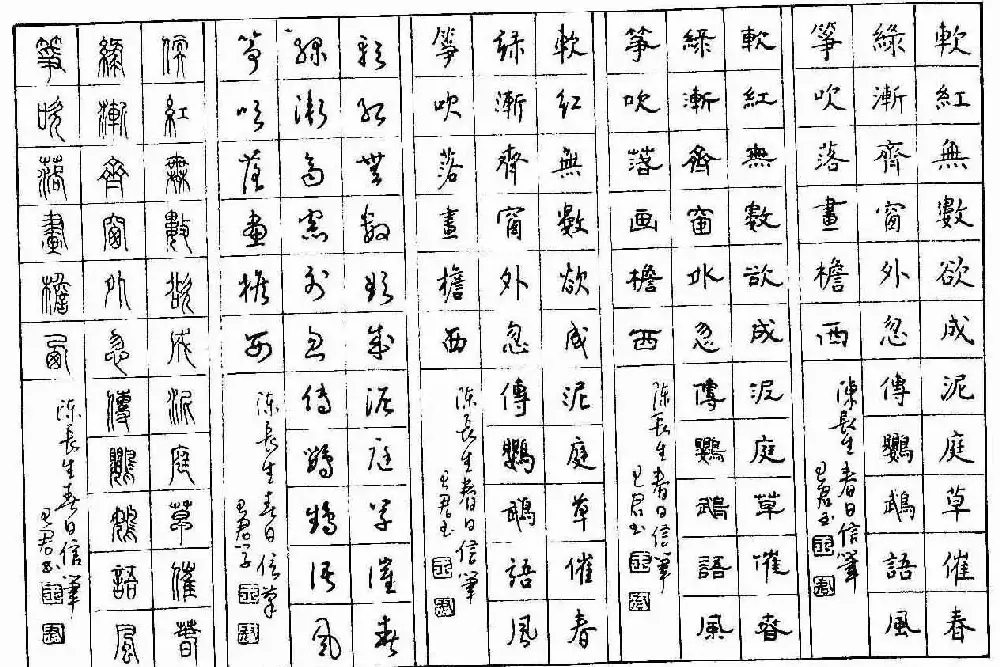 軟紅無數欲成泥庭草催春
綠漸齊窗外忽傳鸚鵡語風
箏吹落畫檐西
陳長生春日信筆
軟紅無數欲成泥庭草催春
綠漸齊窗外忽傳鸚鵡語風
箏吹落画檐西
陈長生春日信筆
軟紅無數欲成泥庭草催春
綠漸齊窗外忽傳鸚鵡語風
箏吹落畫檐西
陈長生春日信筆
軟紅無數欲成泥庭草催春
綠漸齊窗外忽傳鸚鵡語風
箏吹落畫檐西
陈長生春日信筆
軟紅無數欲成泥庭草催春
綠漸齊窗外忽傳鸚鵡語風
箏吹落畫檐西
陈長生春日信筆